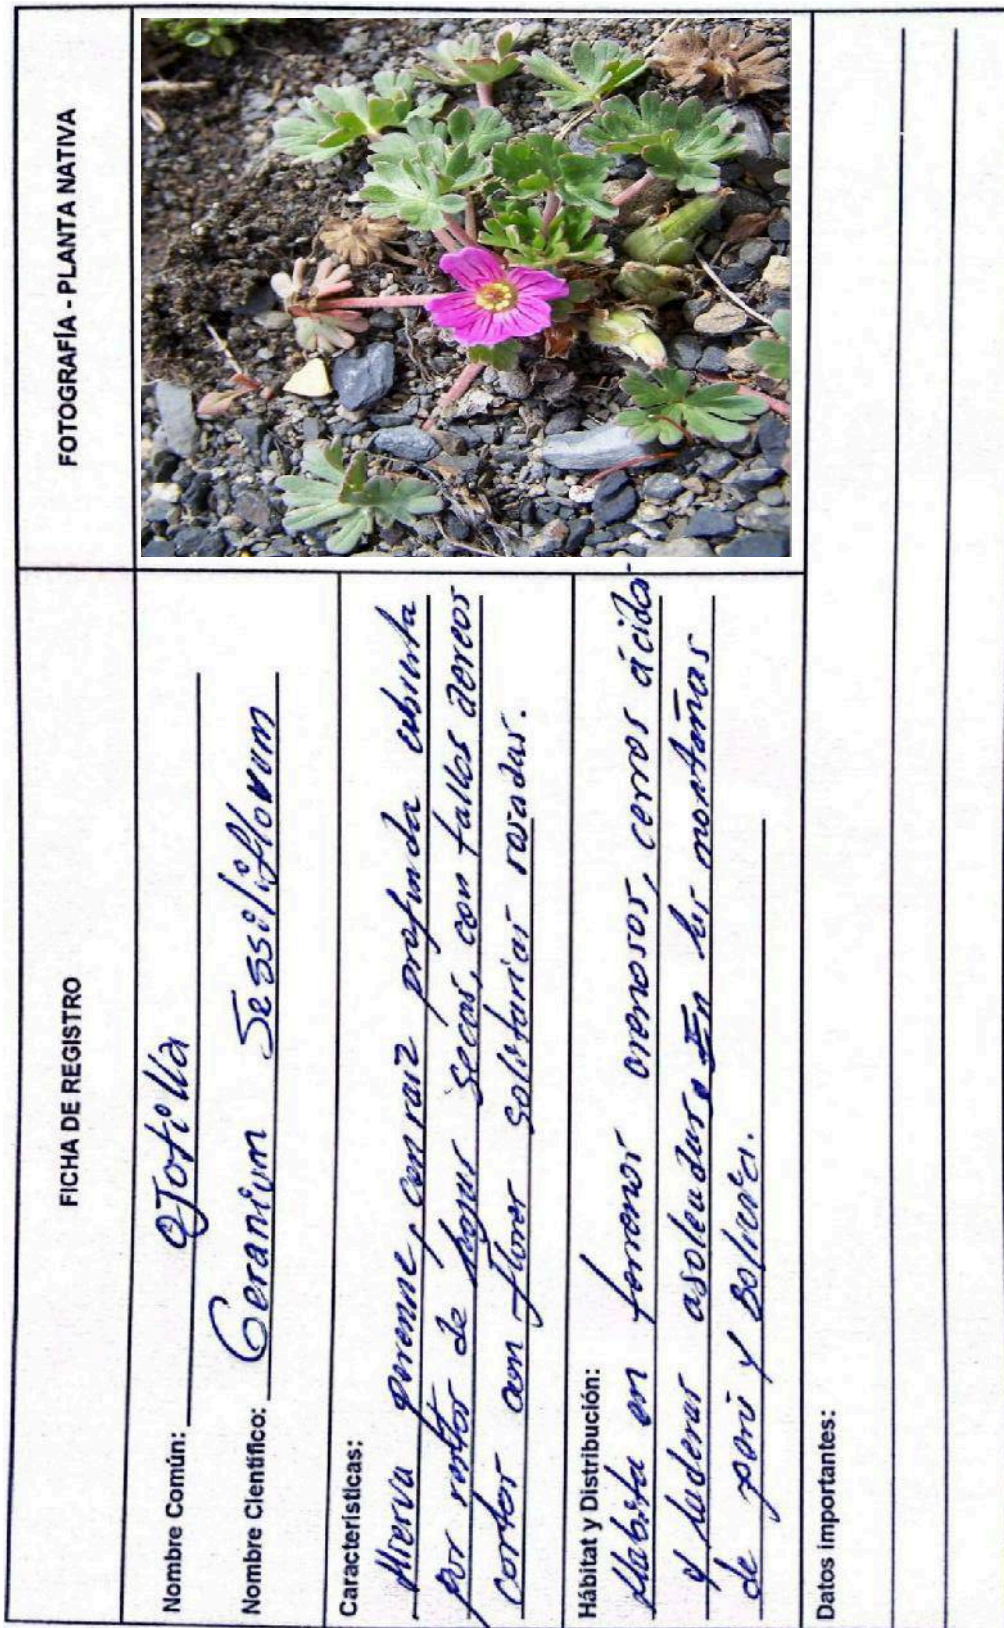 FICHA DE REGISTRO
FOTOGRAFÍA - PLANTA NATIVA
Nombre Común: Ojotilla
Nombre Científico: Geranium Sessiliflorum
Características:
Hierva perenne, con raíz profunda cubierta
por restos de hojas secas, con tallos aereos
cortos con flores solitarias rosadas.
Hábitat y Distribución:
Habita en terrenos arenosos, cerros ácidos
y laderas asoleadas. En las montañas
de perú y Bolivia.
Datos importantes: